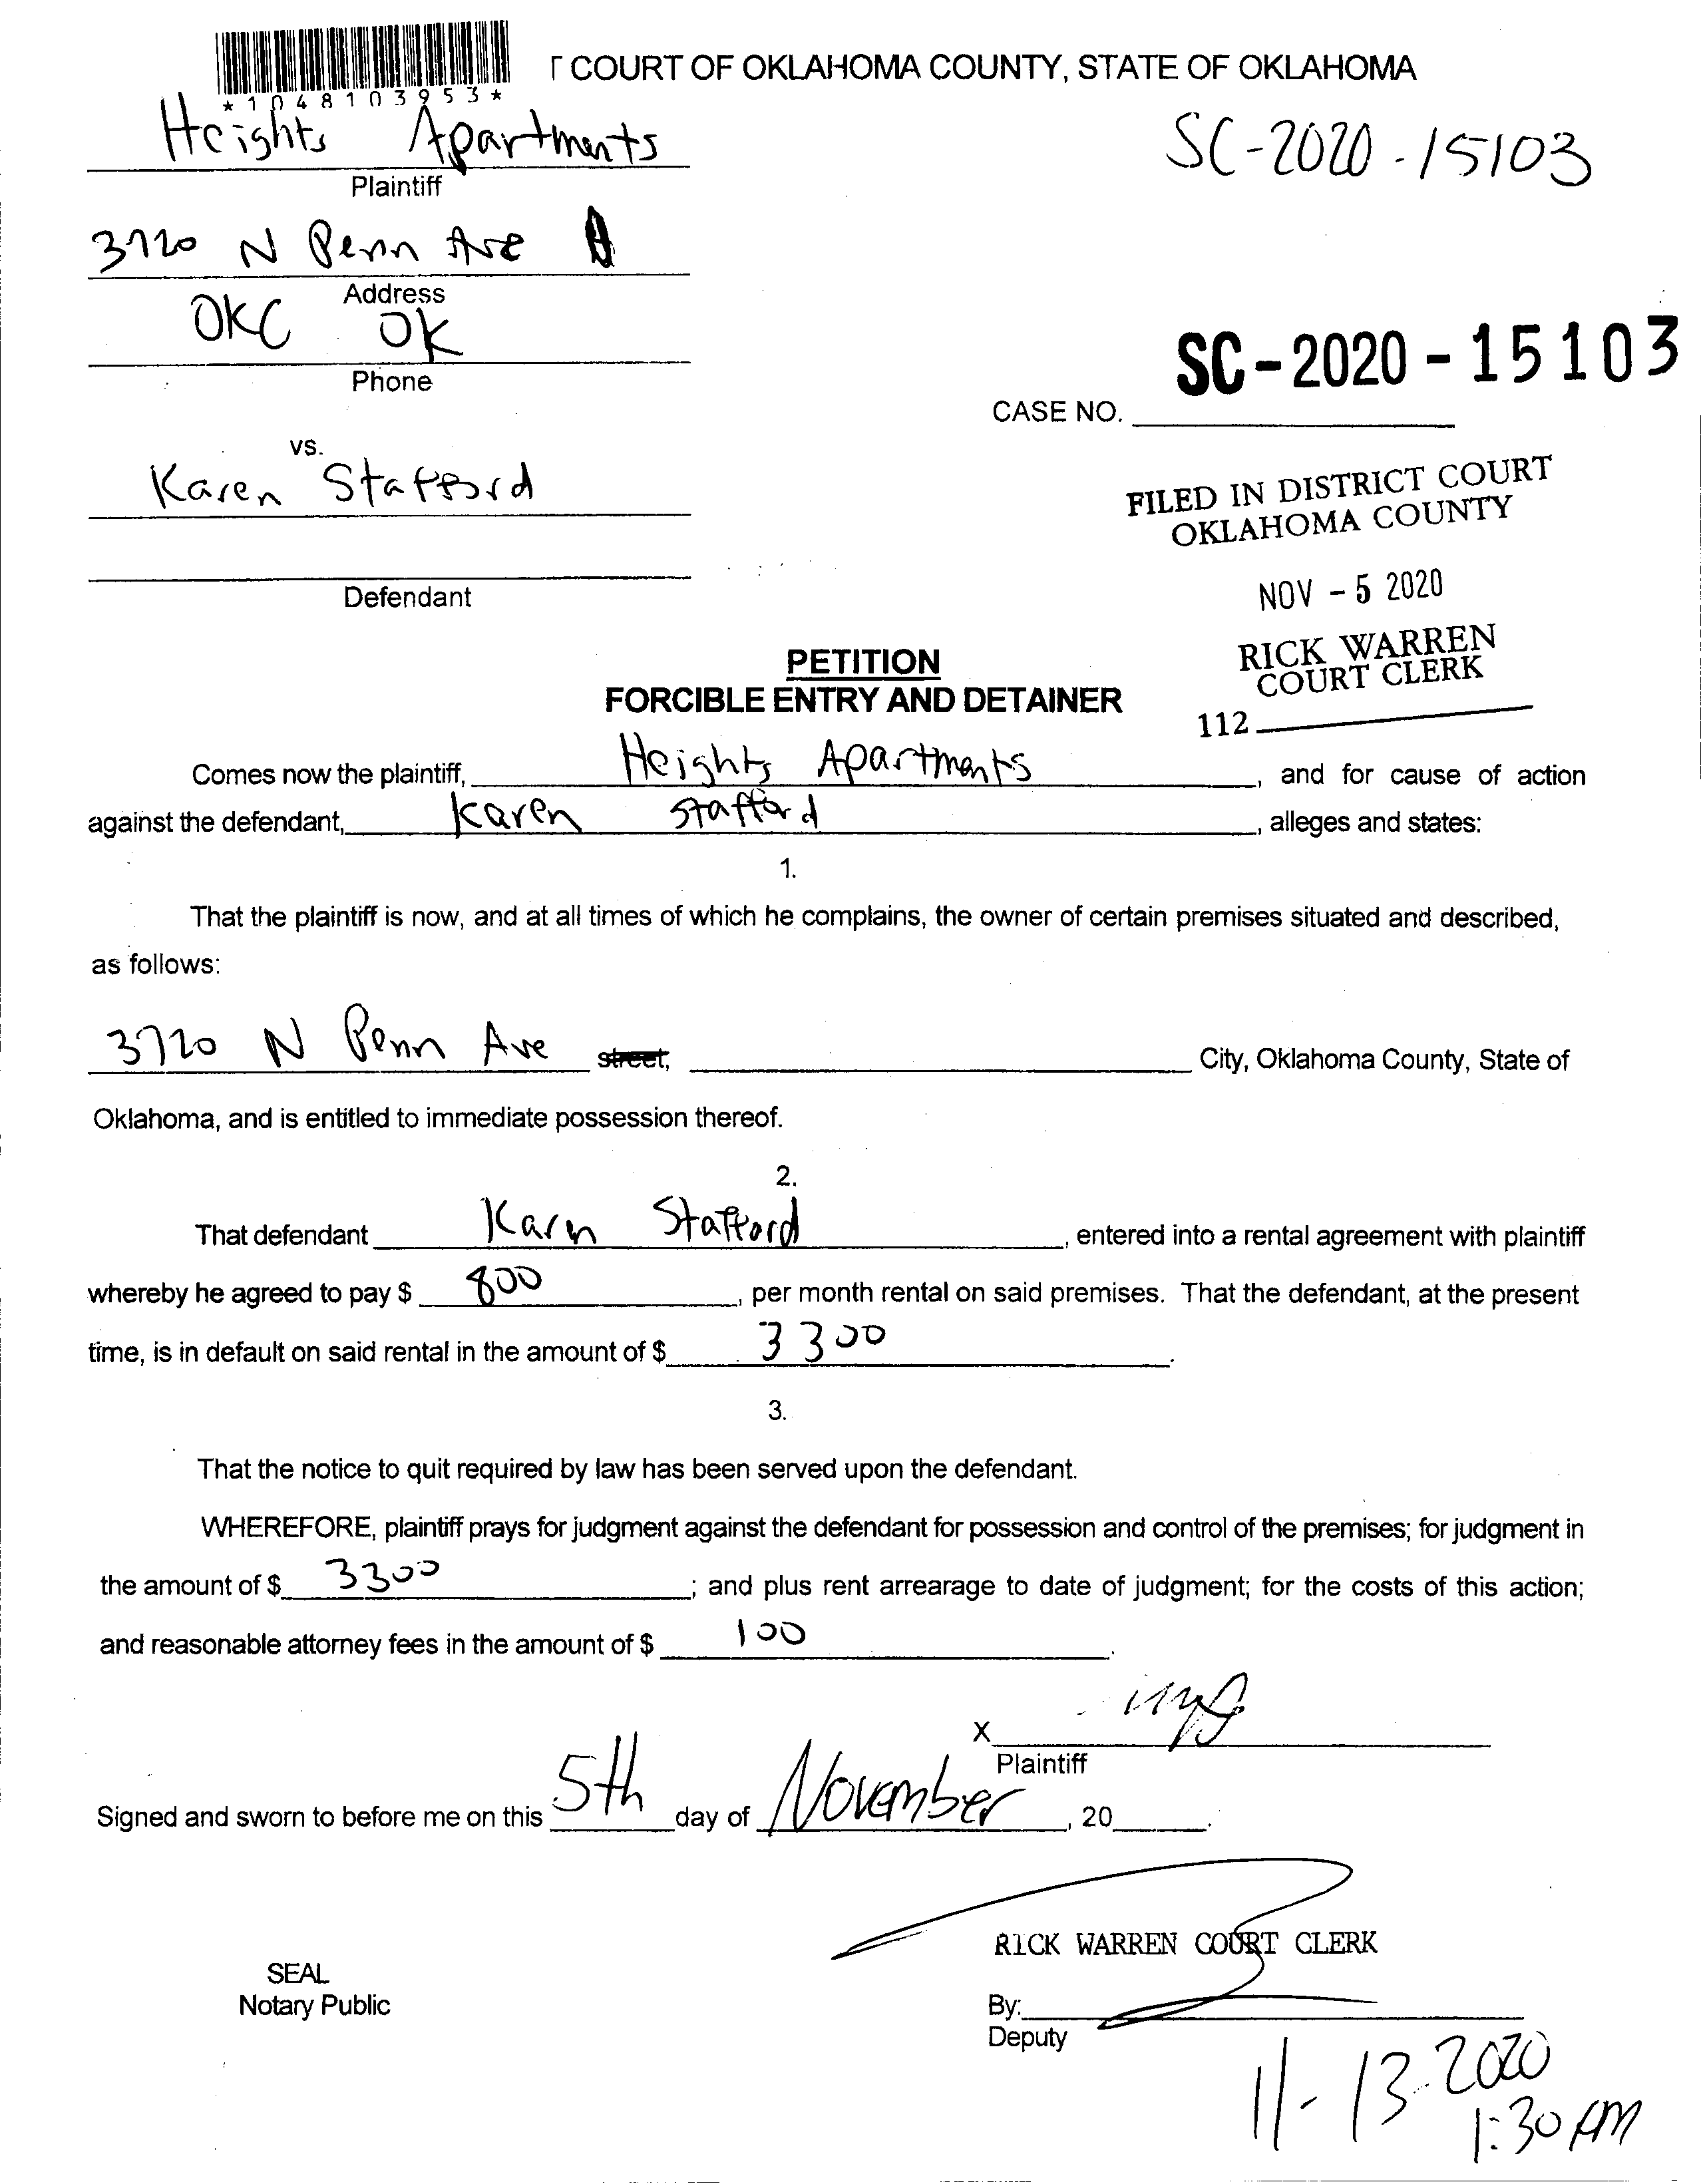 *1048103953*
T COURT OF OKLAHOMA COUNTY, STATE OF OKLAHOMA
Heights Apartments
Plaintiff
SC-2020-15103
3720 N Penn Ave
Address
OKC OK
Phone
SC-2020-15103
CASE NO.
vs.
Karen Stafford
Defendant
FILED IN DISTRICT COURT
OKLAHOMA COUNTY
NOV - 5 2020
RICK WARREN
COURT CLERK
112
PETITION
FORCIBLE ENTRY AND DETAINER
Comes now the plaintiff, Heights Apartments, and for cause of action
against the defendant, Karen Stafford, alleges and states:
1.
That the plaintiff is now, and at all times of which he complains, the owner of certain premises situated and described,
as follows:
3720 N Penn Ave street, City, Oklahoma County, State of
Oklahoma, and is entitled to immediate possession thereof.
2.
That defendant Karen Stafford, entered into a rental agreement with plaintiff
whereby he agreed to pay $ 800, per month rental on said premises. That the defendant, at the present
time, is in default on said rental in the amount of $ 3300.
3.
That the notice to quit required by law has been served upon the defendant.
WHEREFORE, plaintiff prays for judgment against the defendant for possession and control of the premises; for judgment in
the amount of $ 3300; and plus rent arrearage to date of judgment; for the costs of this action;
and reasonable attorney fees in the amount of $ 100.
X
Plaintiff
Signed and sworn to before me on this 5th day of November, 20.
RICK WARREN COURT CLERK
SEAL
Notary Public
By:
Deputy
11-13-2020
1:30 PM